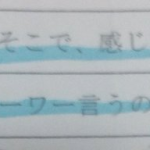 そこで、感じ
ーワー言うの